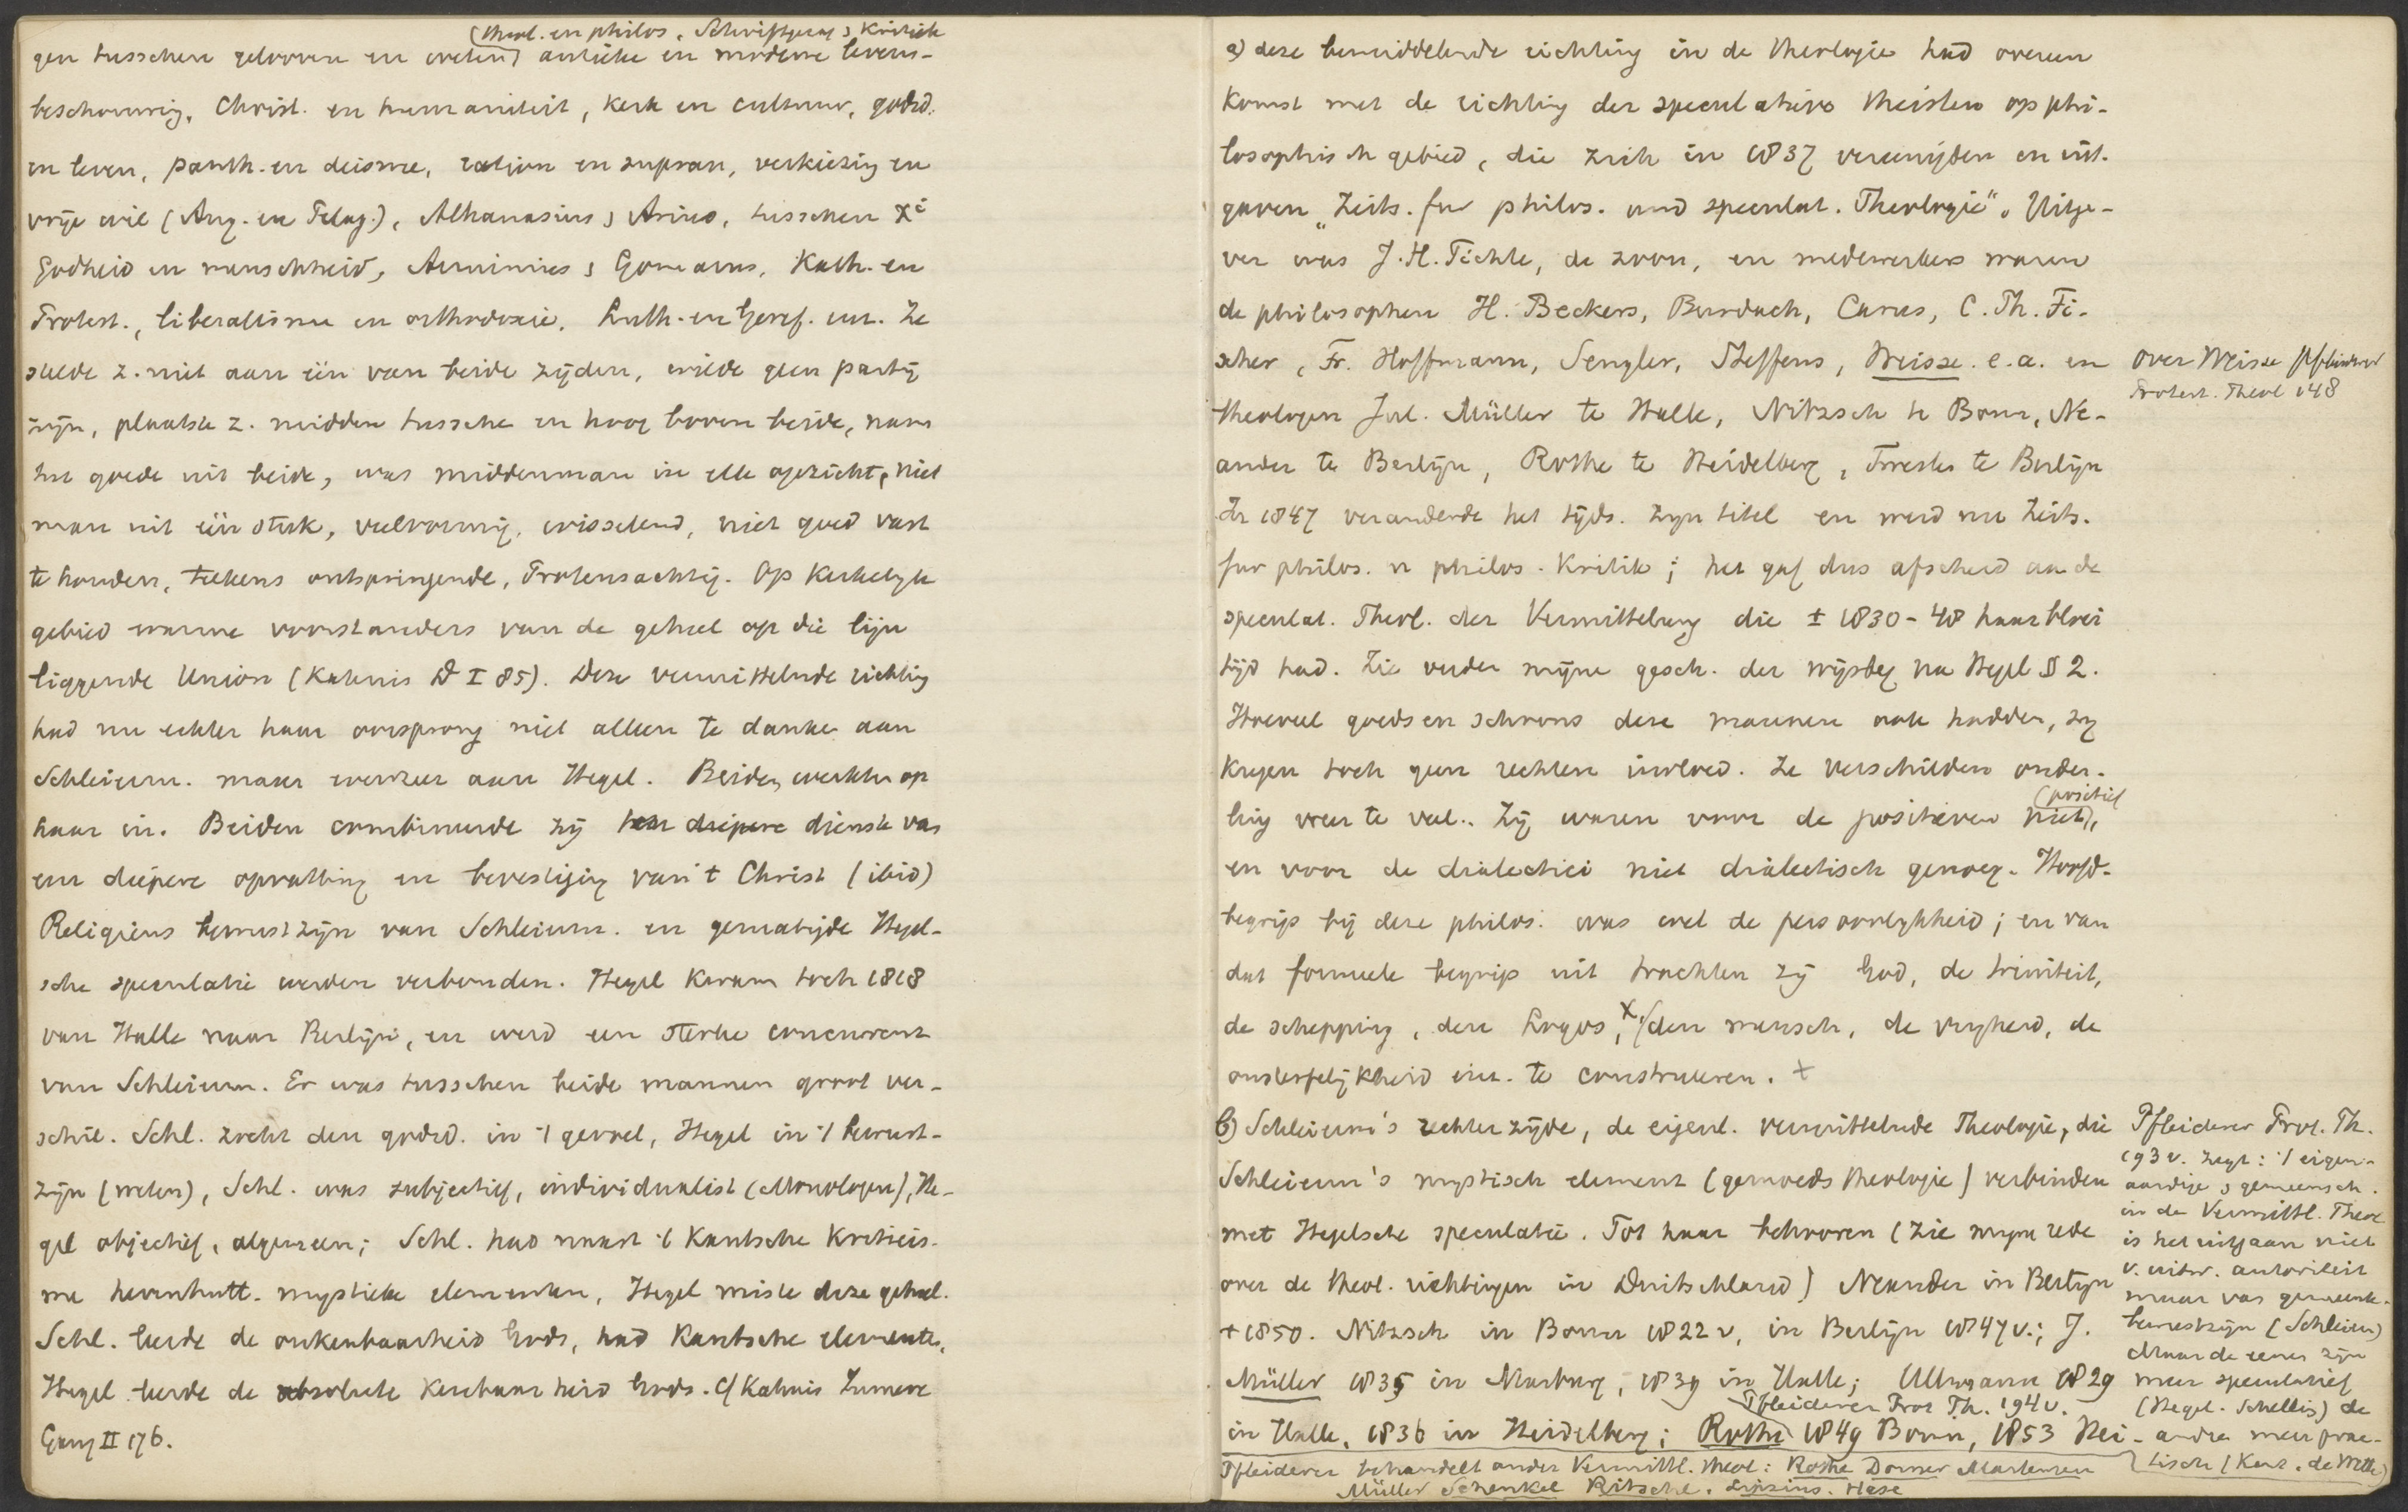 (theol. en philos., Schriftgezag & Kritiek
gen tusschen gelooven en weten) antieke en moderne levens-
beschouwing, Christ. en humaniteit, kerk en cultuur, godsd.
en leven, panth. en deisme, ration en supran, verkiezing en
vrije wil (Aug. en Pelag.), Athanasius & Arius, tusschen Xi
Godheid en menschheid, Arminius & Gomarus, Kath. en
Protest., liberalisme en orthodoxie, Luth. en Geref. enz. Ze
stelde z. niet aan één van beide zijden, wilde geen partij
zijn, plaatste z. midden tusschen en hoog boven beide, nam
het goede uit beide, was middenman in elk opzicht, niet
man uit één stuk, veelvormig, wisselend, niet goed vast
te houden, telkens ontspringende, Proteusachtig. Op Kerkelijk
gebied warme voorstanders van de geheel op die lijn
liggende Union (Kahnis D I 85). Deze vermittelnde richting
had nu echter haar oorsprong niet alleen te danken aan
Schleierm. maar evenzeer aan Hegel. Beiden werkten op
haar in. Beiden combineerde zij ten diepere dienste van
een diepere opvatting en bevestiging van 't Christ (ibid)
Religieus bewustzijn van Schleierm. en gematigde Hegel-
sche speculatie werden verbonden. Hegel kwam toch 1818
van Halle naar Berlijn, en werd een sterke concurrent
van Schleierm. Er was tusschen beide mannen groot ver-
schil. Schl. zocht den godsd. in 't gevoel, Hegel in 't bewust-
zijn (weten), Schl. was subjectief, individualist (Monologen), He-
gel objectief, algemeen; Schl. had naast 't Kantsche Kriticis-
me hernhutt. mystieke elementen, Hegel miste deze geheel.
Schl. leerde de onkenbaarheid Gods, had Kantsche elementen,
Hegel leerde de absolute Kenbaarheid Gods. Cf Kahnis Innere
Gang II 176.
a) deze bemiddelende richting in de theologie had overeen
komst met de richting der speculatieve theisten op phi-
losophisch gebied, die zich in 1837 vereenigden en uit-
gaven "Zeits. fur philos. und speculat. Theologie". Uitge-
ver was J.H. Fichte, de zoon, en medewerkers waren
de philosophen H. Beckers, Burdach, Carus, C. Th. Fi-
scher, Fr. Hoffmann, Sengler, Steffens, Weisse. e.a. en
over Weisse Pfleiderer
Protest. Theol 148
theologen Jul. Müller te Halle, Nitzsch te Bonn, Ne-
ander te Berlijn, Rothe te Heidelberg, Twesten te Berlijn
In 1847 veranderde het tijds. zijn titel en werd nu Zeits.
fur philos. u philos. Kritik; het gaf dus afscheid aan de
speculat. Theol. der Vermittelung die ± 1830-48 haar bloei
tijd had. Zie verder mijne gesch. der wijsbeg na Hegel § 2.
Hoeveel goeds en schoons deze mannen ook hadden, zij
kregen toch geen rechten invloed. Ze verschilden onder-
ling weer te veel. Zij waren voor de positieven niet (positief),
en voor de dialectici niet dialectisch genoeg. Hoofd-
begrip bij deze philos. was wel de persoonlijkheid; en van
dat formeele begrip uit trachten zij God, de triniteit,
de schepping, den Logos, X, den mensch, de vrijheid, de
onsterfelijkheid enz. te construeren. +
b) Schleierm's rechter zijde, de eigenl. vermittelnde Theologie, die
Schleierm's mystisch element (gemoeds theologie) verbinden
met Hegelsche speculatie. Tot haar behooren (zie mijn rede
over de theol. richtingen in Duitschland) Neander in Berlijn
+ 1850. Nitzsch in Bonn 1822 v, in Berlijn 1847 v.; J.
Müller 1835 in Marburg, 1839 in Halle; Ullmann 1829
Pfleiderer Prot Th. 194 v.
in Halle, 1836 in Heidelberg; Rothe 1849 Bonn, 1853 Hei-
Pfleiderer behandelt onder Vermittl. theol: Rothe Dorner Martensen
Müller Schenkel Ritschl. Lipsius. Hase
Pfleiderer Prot. Th.
193 v. zegt: 't eigen-
aardige & gemeensch.
in de Vermittl. Theol
is het uitgaan niet
v. uitw. autoriteit
maar van gemeente-
bewustzijn (Schleierm)
Maar de eenen zijn
meer speculatief
(Hegel. Schelling) de
andre meer prac-
tisch (Kant. de Wette)